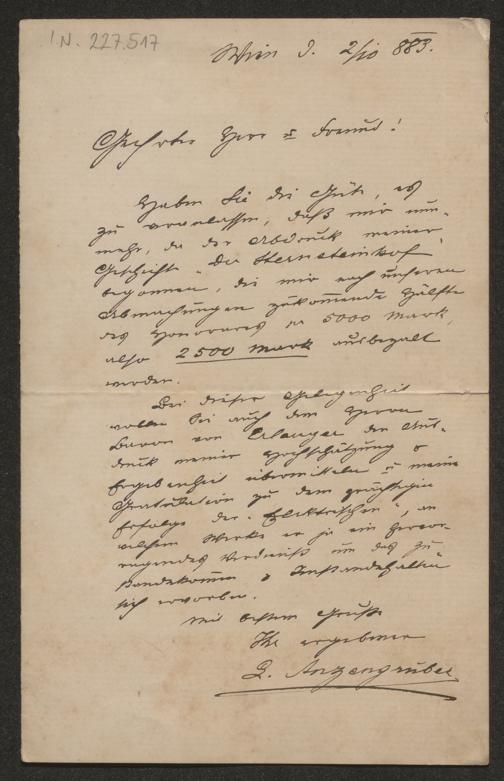 I.N. 227.517
Wien d. 2/10 883.
Geehrter Herr u Freund!
Haben Sie die Güte, es
zu veranlassen, daß mir nun-
mehr, da der Abdruck meiner
Geschichte "Der Sternsteinhof"
begonnen, die mir nach unseren
Abmachungen zukommende Hälfte
des Honorares pr 5000 Mark,
also 2500 Mark ausbezalt
werden.
Bei dieser Gelegenheit
wollen Sie auch dem Herrn
Baron von Erlanger den Aus-
druck meiner Hochschätzung &
Ergebenheit übermitteln u meine
Gratulation zu dem prächtigen
Erfolge der "Elektrischen", an
welchem Werke er ja ein hervor-
ragendes Verdienst um das Zu-
standekommen & Instandehalten
sich erworben.
Mit bestem Gruße
Ihr ergebener
L. Anzengruber